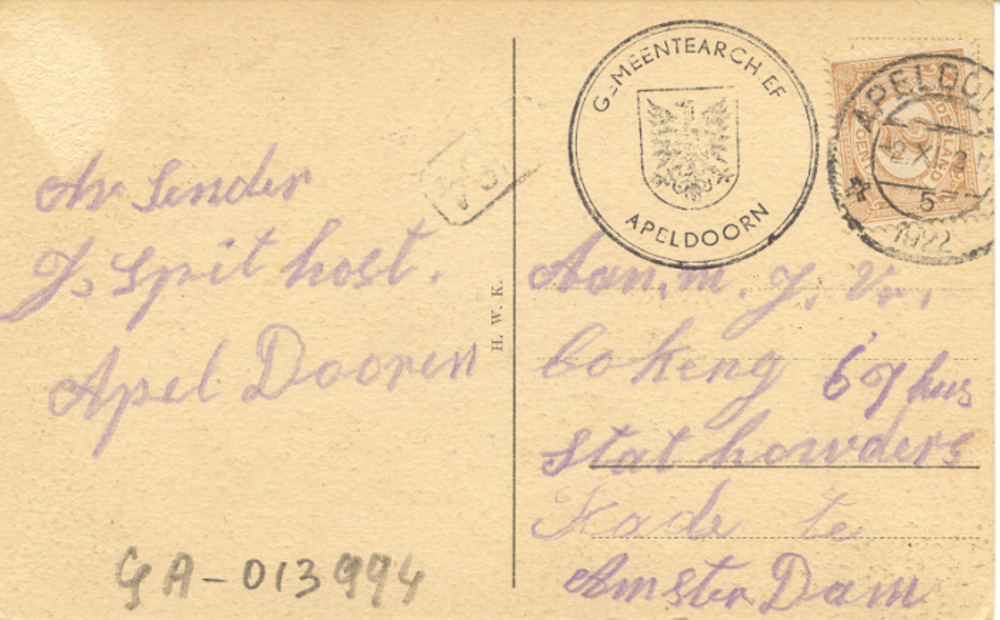 Av Sender
J, Spit host.
Apel Dooren
GA-013994
H. W. K.
GEMEENTEARCHIEF
APELDOORN
APELDOORN
5
1922
NEDERLAND
CENT
Aan. m. J. Vr.
Cokeng 67 hus
Stat howders
Kade te
Amster Dam